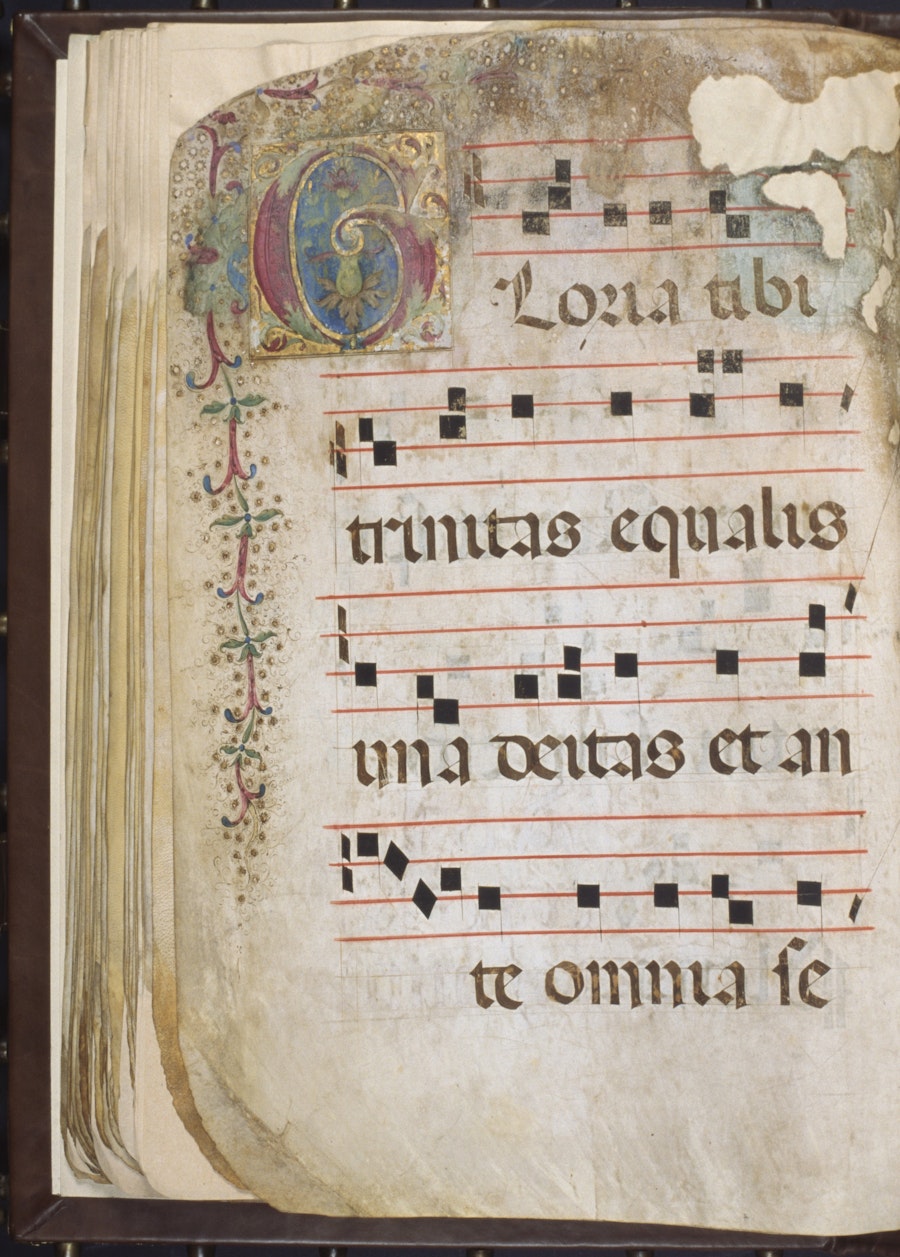 GLoria tibi
trinitas equalis
una deitas et an
te omnia se